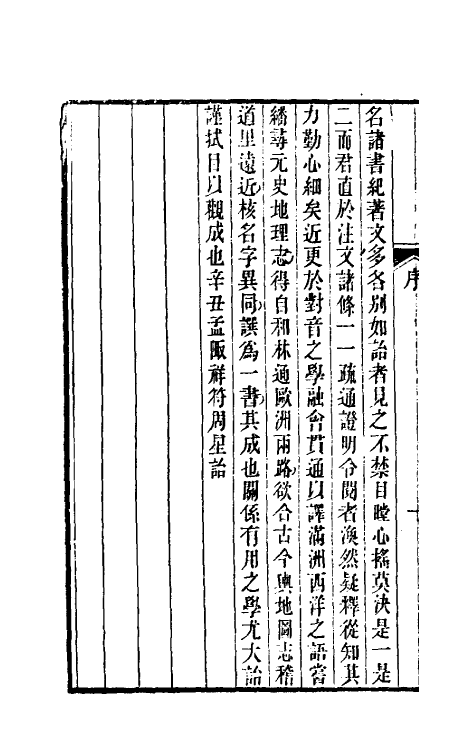 序
名諸書紀著文多各別如詒者見之不禁目瞠心搖莫決是一是
二而君直於注文諸條一一疏通證明令閱者渙然疑釋從知其
力勤心細矣近更於對音之學融會貫通以譯滿洲西洋之語嘗
繙尋元史地理志得自和林通歐洲兩路欲合古今輿地圖志稽
道里遠近核名字異同譔為一書其成也關係有用之學尤大詒
謹拭目以觀成也辛丑孟陬祥符周星詒